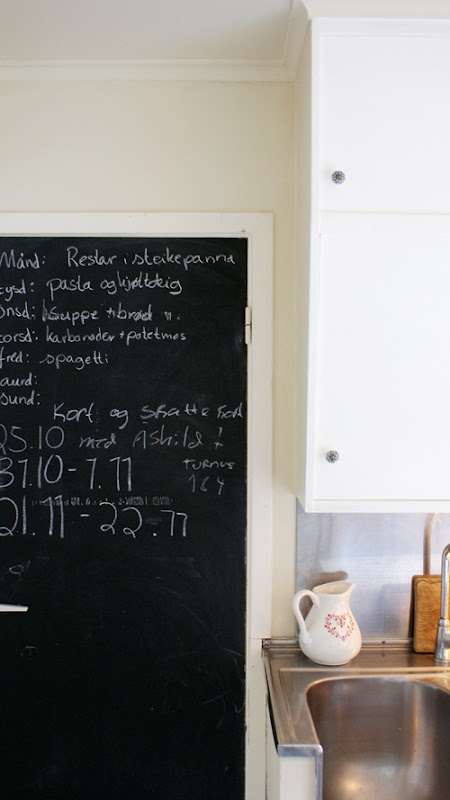 Månd: Restar i steikepanna
tysd: pasta og kjøttdeig
onsd: suppe + brød
torsd: karbonader + potetmos
fred: spagetti
aurd:
sund:
Kort og skattekort
25.10 med Åshild!
31.10 - 7.11 TURNUS
164
21.11 - 22.11